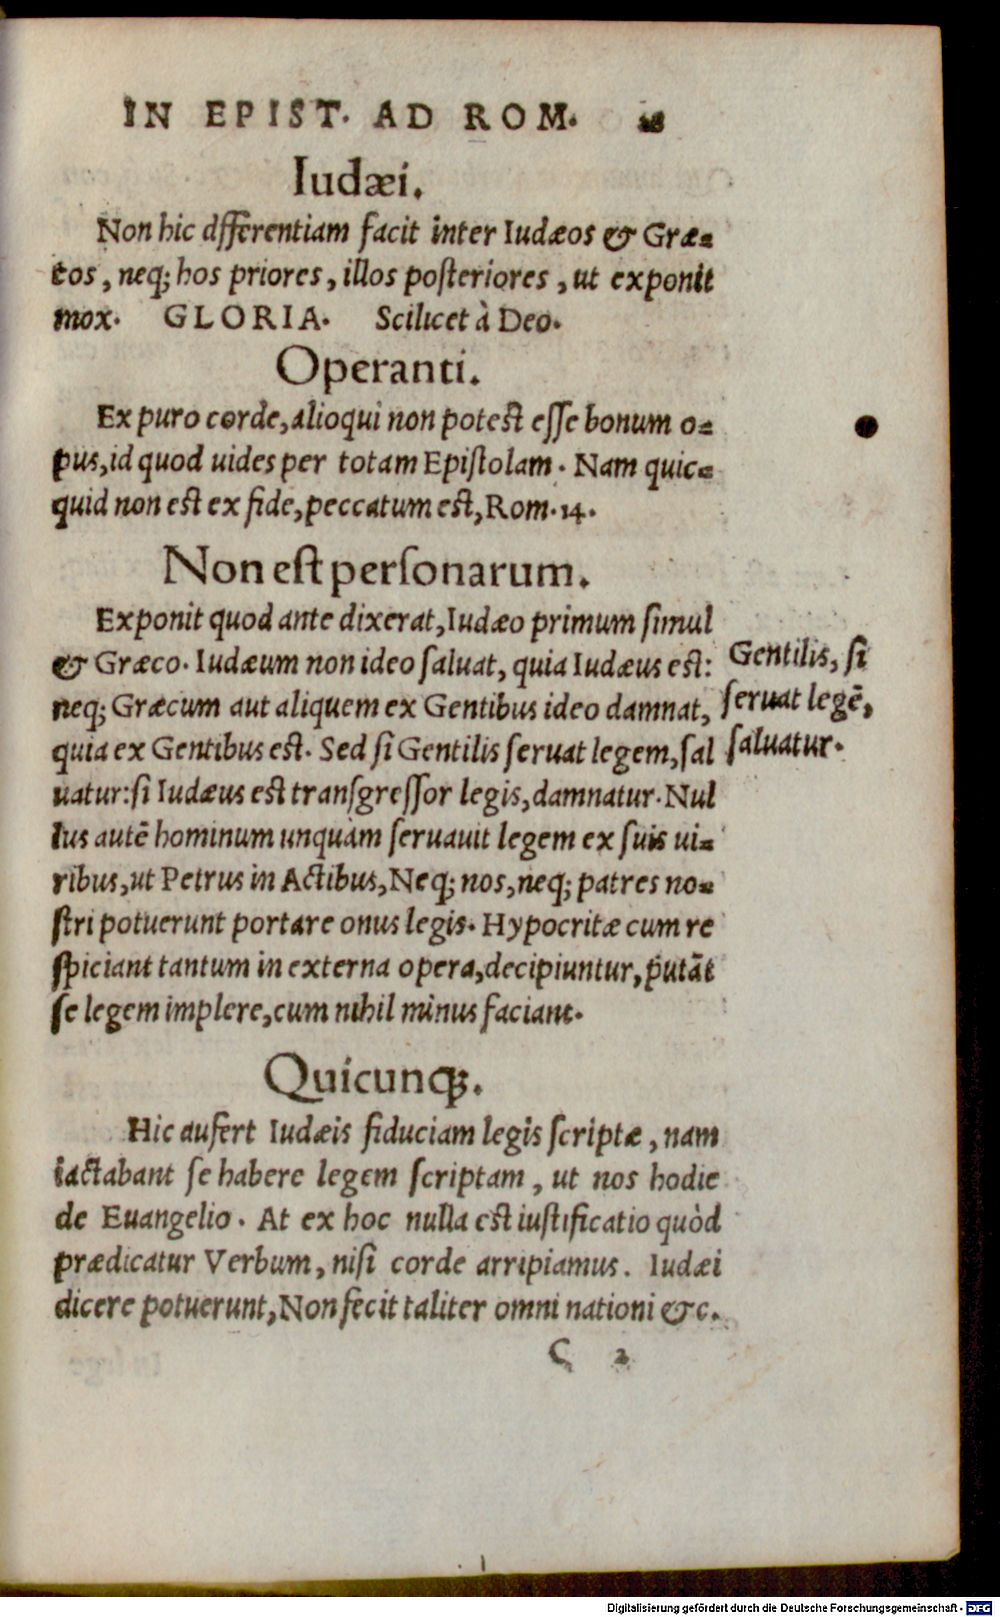 IN EPIST. AD ROM.
Iudæi.
Non hic dfferentiam facit inter Iudæos & Græ-
cos, neq; hos priores, illos posteriores, ut exponit
mox. GLORIA. Scilicet à Deo.
Operanti.
Ex puro corde, alioqui non potest esse bonum o-
pus, id quod uides per totam Epistolam. Nam quic-
quid non est ex fide, peccatum est, Rom. 14.
Non est personarum.
Exponit quod ante dixerat, Iudæo primum simul
& Græco. Iudæum non ideo saluat, quia Iudæus est:
neq; Græcum aut aliquem ex Gentibus ideo damnat,
quia ex Gentibus est. Sed si Gentilis seruat legem, sal
uatur: si Iudæus est transgressor legis, damnatur. Nul
lus autē hominum unquàm seruauit legem ex suis ui-
ribus, ut Petrus in Actibus, Neq; nos, neq; patres no-
stri potuerunt portare onus legis. Hypocritæ cum re
spiciant tantum in externa opera, decipiuntur, putāt
se legem implere, cum nihil minus faciant.
Gentilis, si
seruat legē,
saluatur.
Quicunq;.
Hic aufert Iudæis fiduciam legis scriptæ, nam
iactabant se habere legem scriptam, ut nos hodie
de Euangelio. At ex hoc nulla est iustificatio quòd
prædicatur Verbum, nisi corde arripiamus. Iudæi
dicere potuerunt, Non fecit taliter omni nationi &c.
C 2
Digitalisierung gefördert durch die Deutsche Forschungsgemeinschaft - DFG